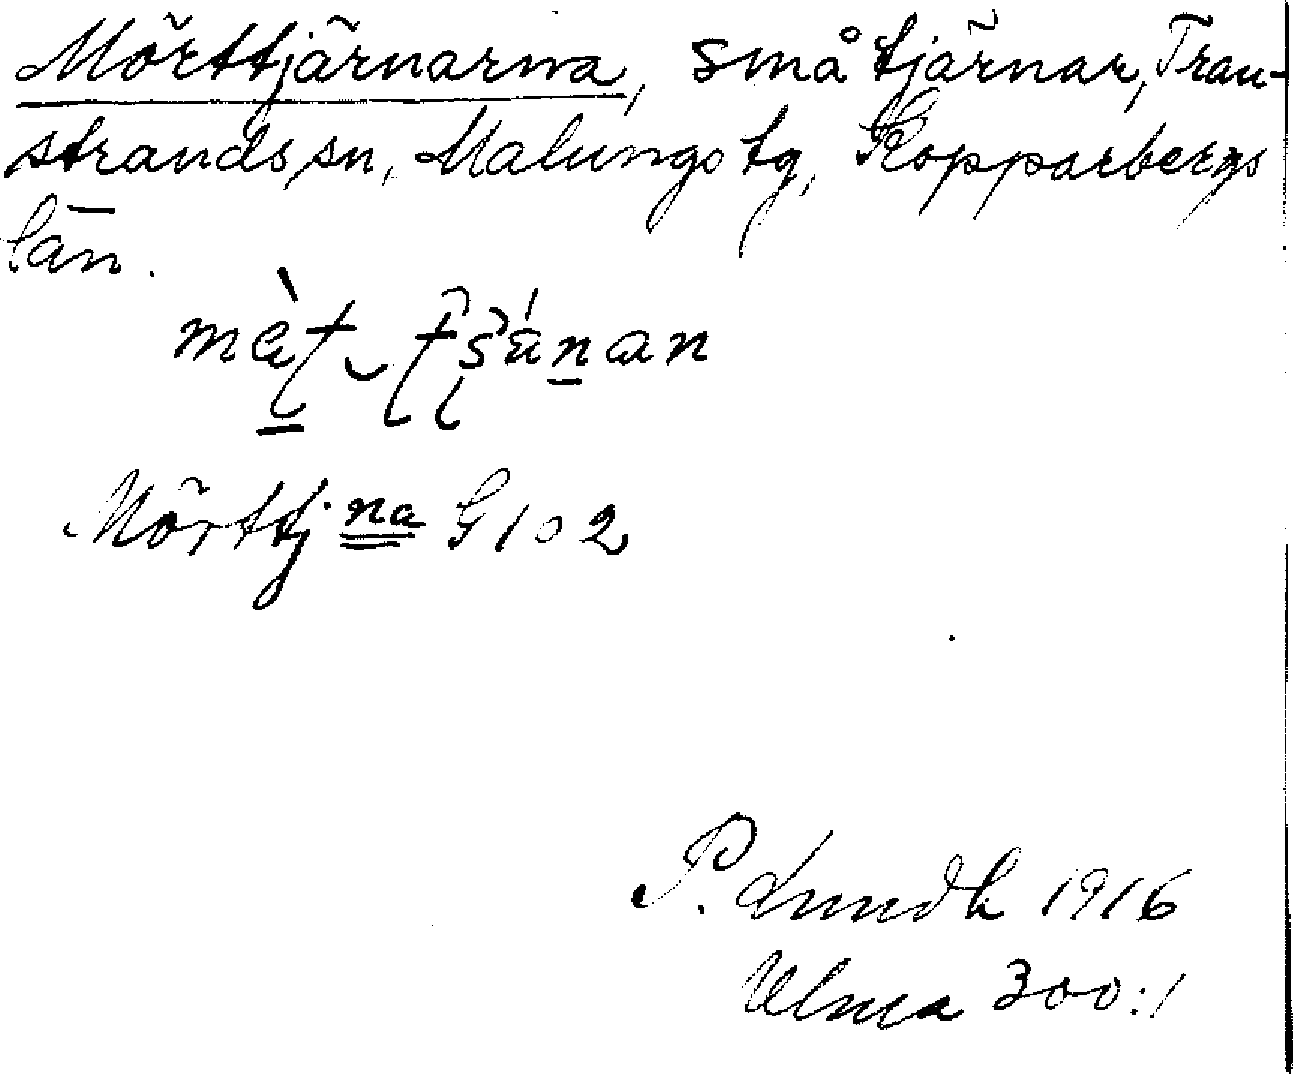 Mörttjärnarna, små tjärnar, Tran-
strands sn, Malungs tg, Kopparbergs
län.
Mörttj na G 102
P. Lundh 1916
Ulma 300:1